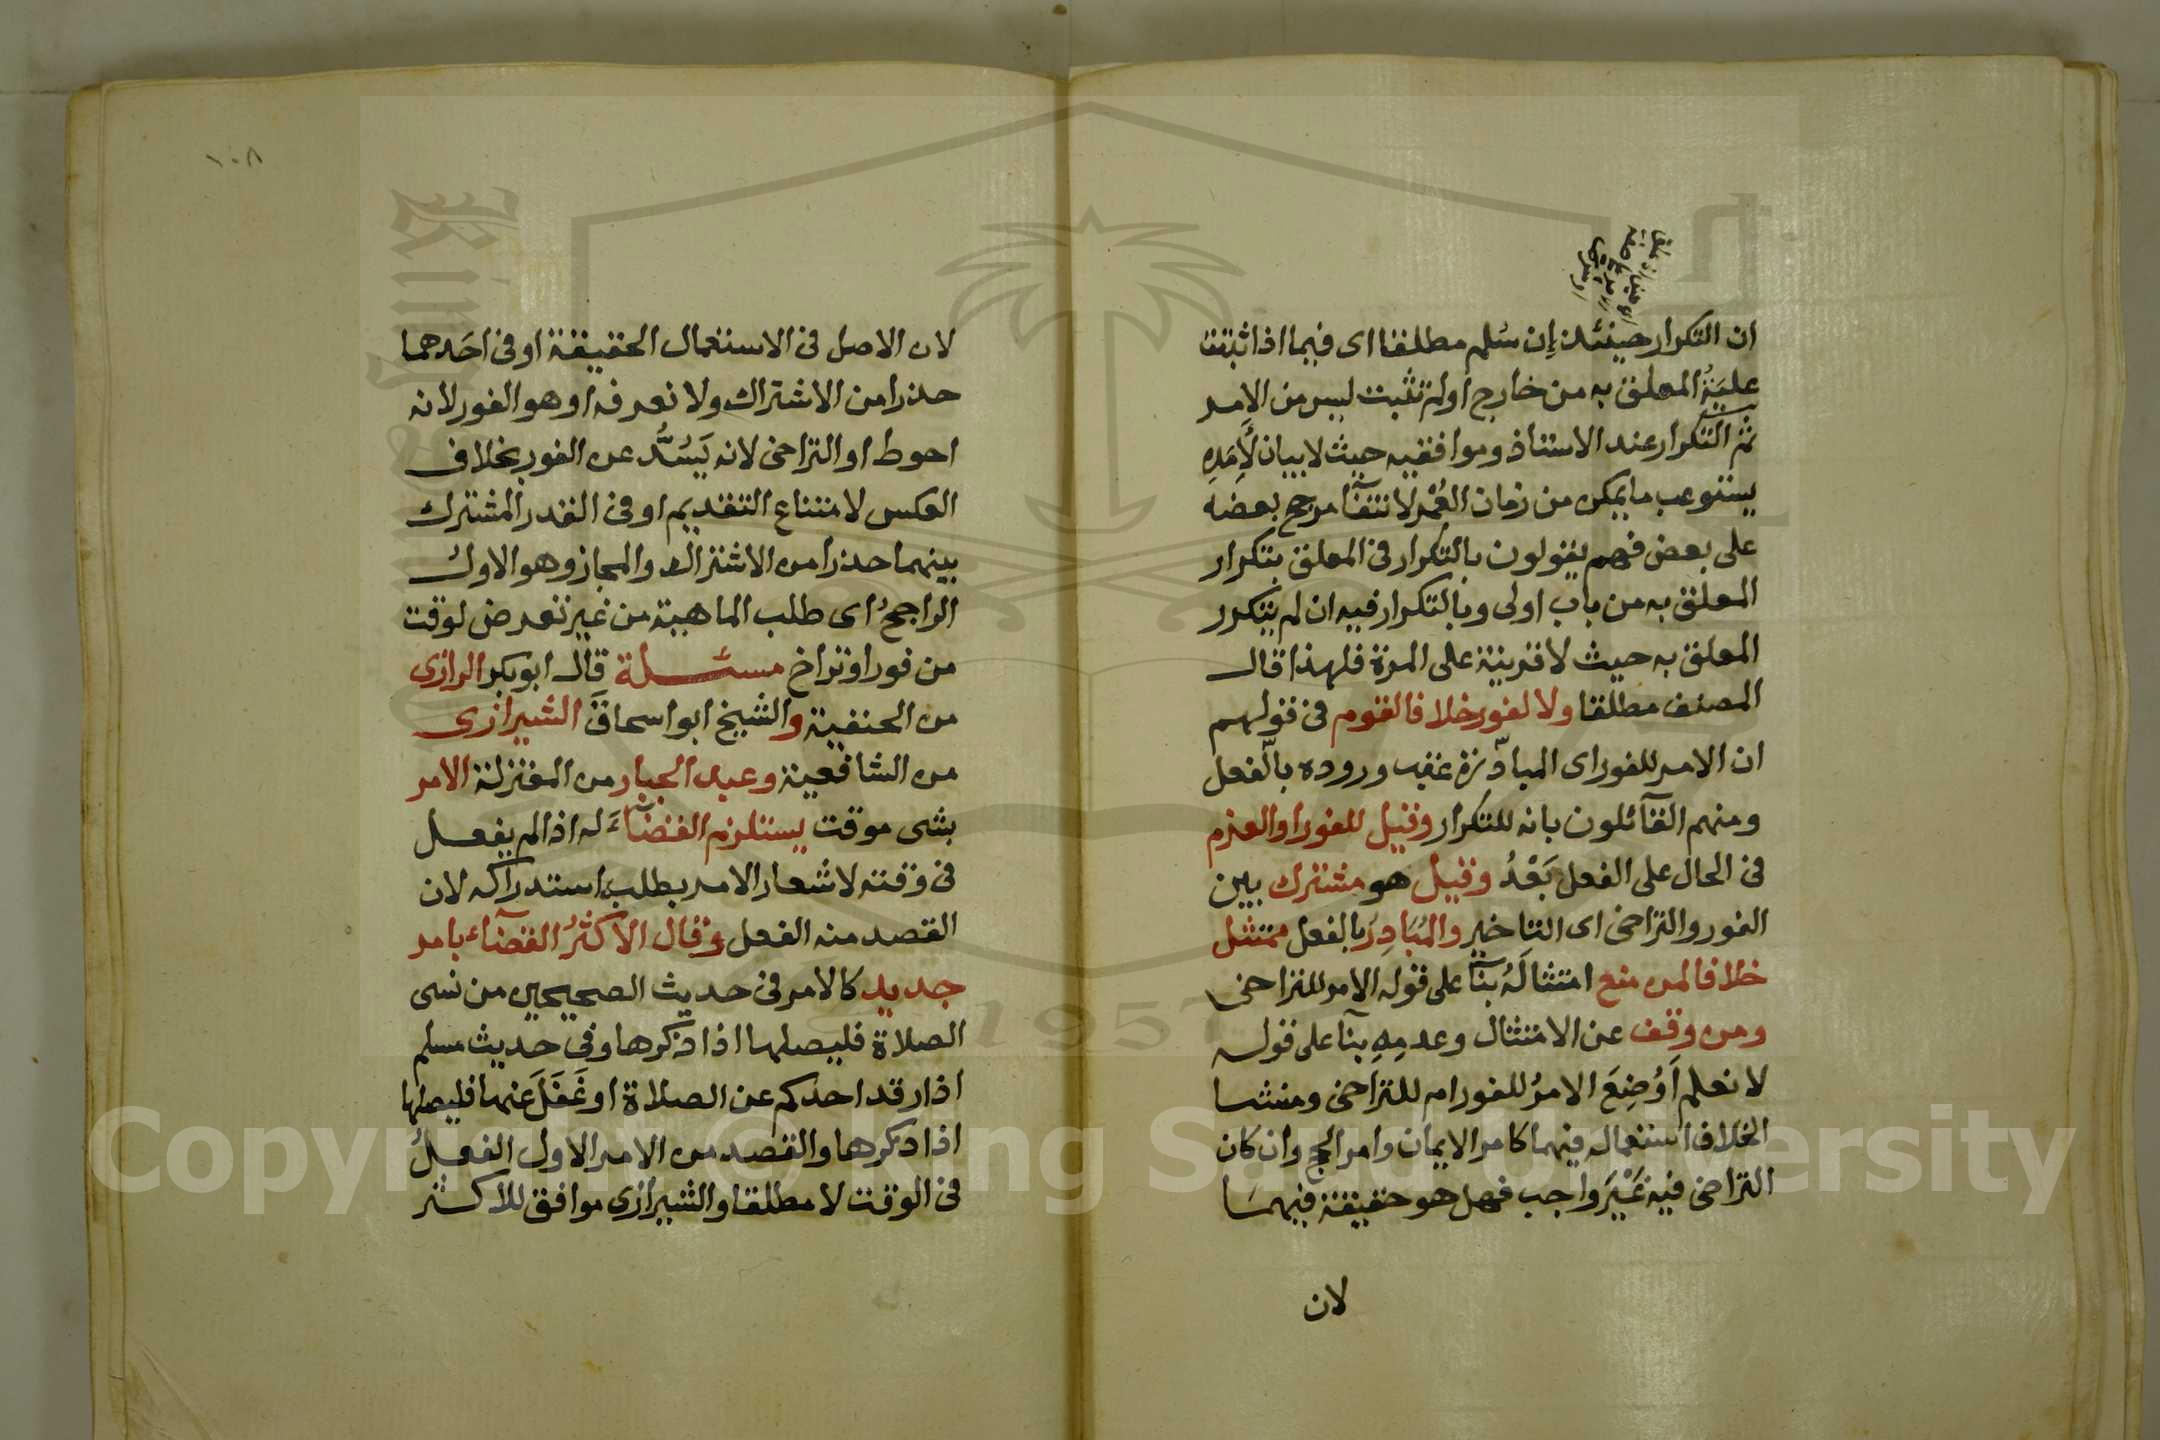 ان التكرار حينئذ إن سُلم مطلقا اى فيما اذا ثبتت
عليَّةُ المعلق به من خارج اولم تثبت ليس من الامر
ثم التكرار عند الاستاذ وموافقيه حيث لا بيان لأَمَدِهِ
يستوعب ما يمكن من زمان العُمْر لانتفآ مرجح بعضه
على بعض فهم يقولون بالتكرار فى المعلق بتكرار
المعلق به من باب اولى وبالتكرار فيه ان لم يتكرر
المعلق به حيث لا قرينة على المرة فلهذا قال
المصنف مطلقا ولا لفور خلافا لقوم فى قولهم
ان الامر للفور اى المبادَرة عقب وروده بالفعل
ومنهم القآئلون بانه للتكرار وقيل للفور او العزم
فى الحال على الفعل بَعْدُ وقيل هو مشترك بين
الفور والتراخى اى التاخير والمُبَادِرُ بالفعل ممتثل
خلافا لمن منع امتثالَهُ بنآ على قوله الامر للتراخى
ومن وقف عن الامتثال وعدمِهِ بنآ على قوله
لا نعلم اَوُضِعَ الامرُ للفور ام للتراخى ومنشا
الخلاف استعماله فيهما كامر الايمان وامر الحج وان كان
التراخى فيه غَيْرَ واجب فهل هو حقيقة فيهما
لان
١٠٨
لان الاصل فى الاستعمال الحقيقة او فى احَدهما
حذرا من الاشتراك ولا نعرفه او هو الفور لانه
احوط او التراخى لانه يَسُدُّ عن الفور بخلاف
العكس لامتناع التقديم او فى القدر المشترك
بينهما حذرا من الاشتراك والمجاز وهو الاول
الراجحُ اى طلب الماهية من غير تعرض لوقت
من فور او تراخ مسئلة قال ابو بكر الرازى
من الحنفية والشيخ ابو اسحاق الشيرازى
من الشافعية وعبد الجبار من المعتزلة الامر
بشى موقت يستلزم القضآءَ له اذا لم يفعل
فى وقته لاشعار الامر بطلب استدراكه لان
القصد منه الفعل وقال الاكثرُ القضآء بامر
جديد كالامر فى حديث الصحيحين من نسى
الصلاة فليصلها اذا ذكرها وفى حديث مسلم
اذا رقد احدكم عن الصلاة او غَفَلَ عنها فليصلها
اذا ذكرها والقصد من الامر الاول الفعلُ
فى الوقت لا مطلقا والشيرازى موافق للاكثر
1957
Copyright © King Saud University